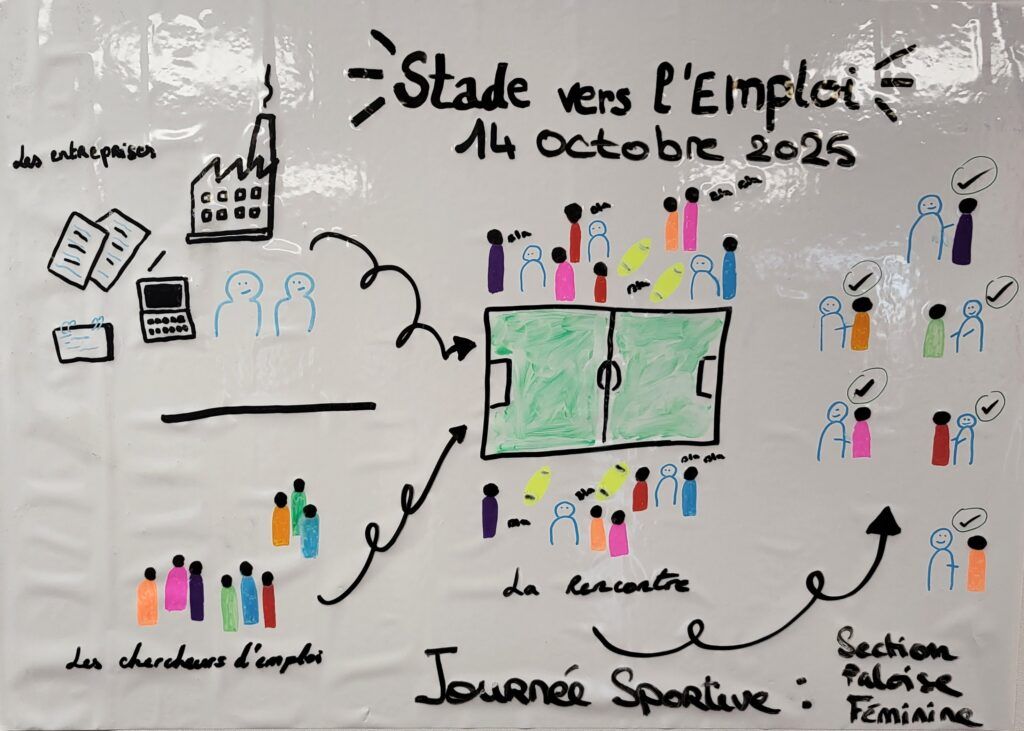 Stade vers l'Emploi
14 Octobre 2025
Les entreprises
Bla
Bla
Bla Bla
Bla
Bla
Bla
Bla Bla
La Rencontre
Les chercheurs d'emploi
Journée Sportive :
Section
Paloise
Féminine